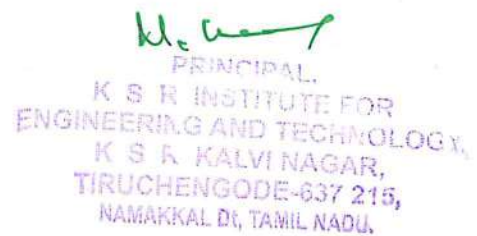 PRINCIPAL,
K S R INSTITUTE FOR
ENGINEERING AND TECHNOLOGY,
K S R KALVI NAGAR,
TIRUCHENGODE-637 215,
NAMAKKAL Dt, TAMIL NADU.